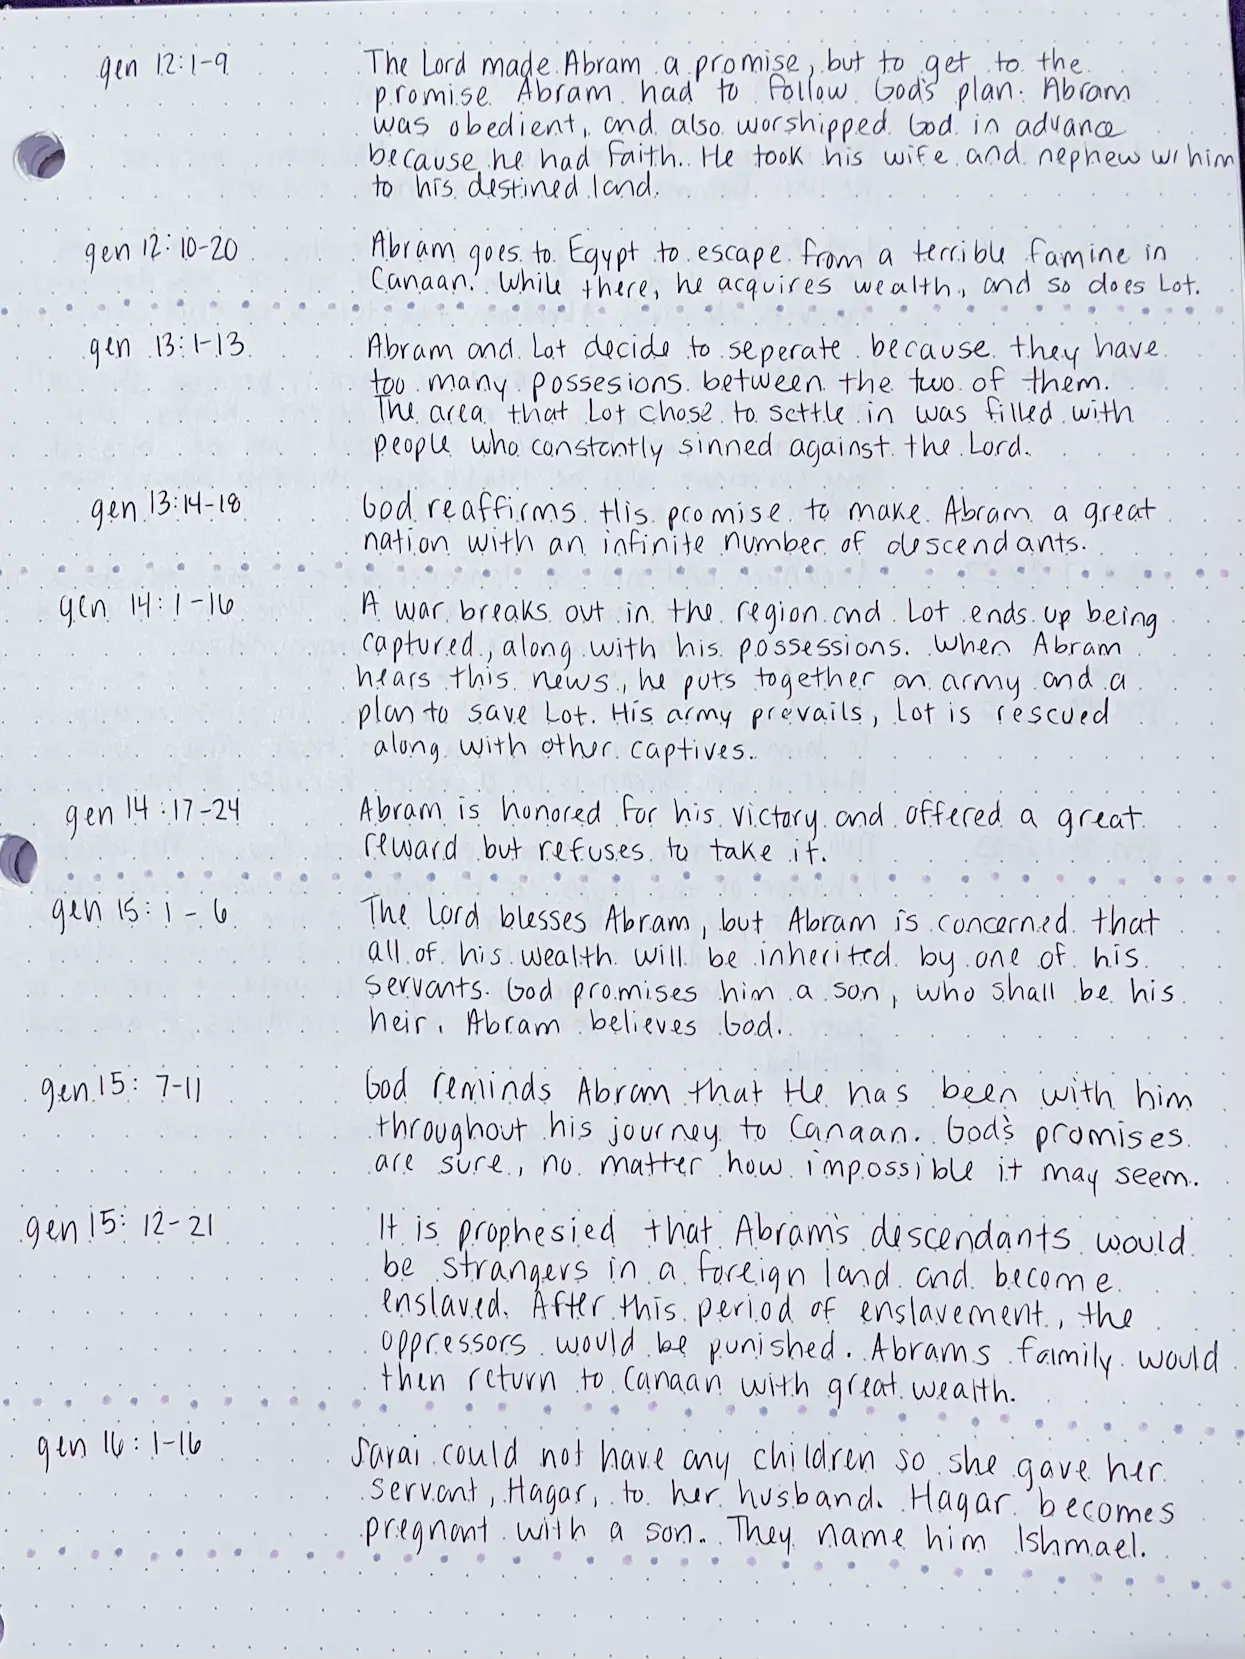 gen 12:1-9 The Lord made Abram a promise, but to get to the
promise Abram had to follow God's plan. Abram
was obedient, and also worshipped God in advance
because he had faith. He took his wife and nephew w/ him
to his destined land.
gen 12:10-20 Abram goes to Egypt to escape from a terrible famine in
Canaan. While there, he acquires wealth, and so does Lot.
gen 13:1-13 Abram and Lot decide to seperate because they have
too many possesions between the two of them.
The area that Lot chose to settle in was filled with
people who constantly sinned against the Lord.
gen 13:14-18 God reaffirms His promise to make Abram a great
nation with an infinite number of descendants.
gen 14:1-16 A war breaks out in the region and Lot ends up being
captured, along with his possessions. When Abram
hears this news, he puts together an army and a
plan to save Lot. His army prevails, Lot is rescued
along with other captives.
gen 14:17-24 Abram is honored for his victory and offered a great
reward but refuses to take it.
gen 15:1-6 The Lord blesses Abram, but Abram is concerned that
all of his wealth will be inherited by one of his
servants. God promises him a son, who shall be his
heir. Abram believes God.
gen 15:7-11 God reminds Abram that He has been with him
throughout his journey to Canaan. God's promises
are sure, no matter how impossible it may seem.
gen 15:12-21 It is prophesied that Abram's descendants would
be strangers in a foreign land and become
enslaved. After this period of enslavement, the
oppressors would be punished. Abrams family would
then return to Canaan with great wealth.
gen 16:1-16 Sarai could not have any children so she gave her
servant, Hagar, to her husband. Hagar becomes
pregnant with a son. They name him Ishmael.